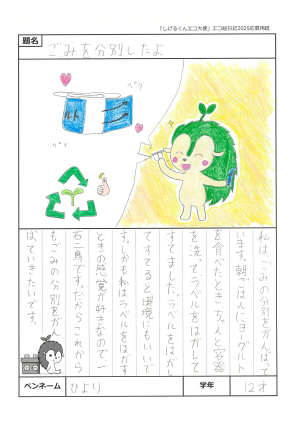 「しげるくんエコ大使」エコ絵日記2025応募用紙
題名
ごみを分別したよ
ペリ
ルト
ペリ
私は、ごみの分別をがんばって
います。朝ごはんにヨーグルト
を食べたとき、ちゃんと容器
を洗って、ラベルをはがして
すてました。ラベルをはがし
てすてると環境にもいいで
す。しかも私はラベルをはがす
ときの感覚が好きなので、一
石二鳥です。だからこれから
もごみの分別をがん
ばっていきたいです。
ペンネーム
ひより
学年
12才